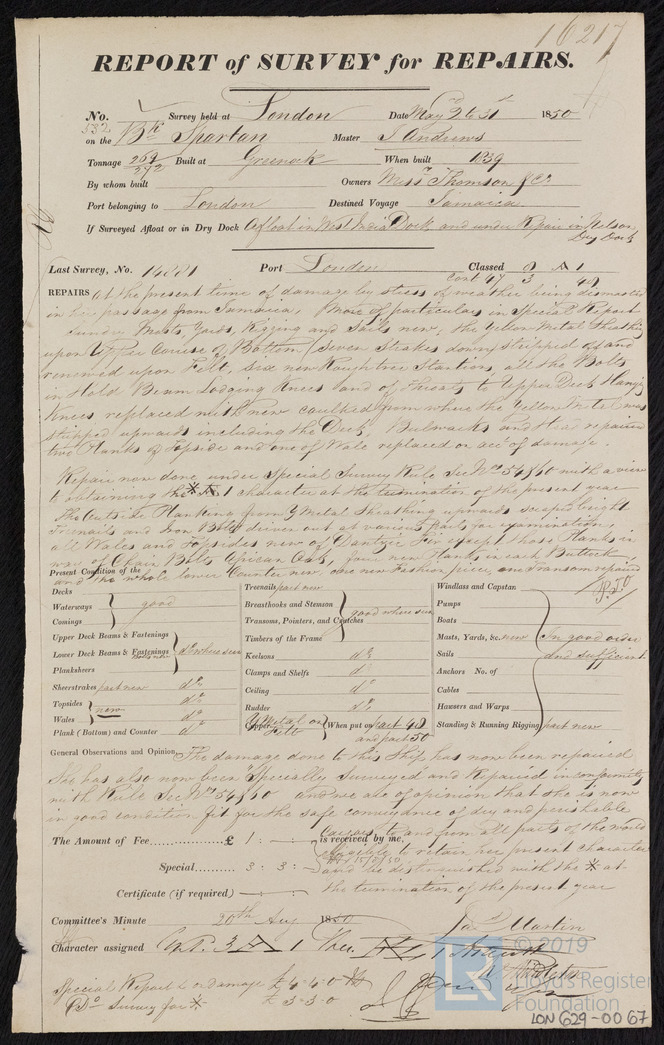 16217
REPORT of SURVEY for REPAIRS.
No. 532 Survey held at London Date May 2 to 31st 1850
on the Bk Spartan Master J Andrews
Tonnage 269/272 Built at Greenock When built 1839
By whom built Owners Messrs Thomson & Co.
Port belonging to London Destined Voyage Jamaica
If Surveyed Afloat or in Dry Dock Afloat in West India Dock and under Repair in Nelson
Dry Dock
Last Survey, No. 14881 Port London Classed A 1
Cont 47 3 48
REPAIRS at the present time of damage by stress of weather being dismasted
in her passage from Jamaica, More of particulars in Special Report
Sundry Masts, Yards, Rigging and Sails new, the Yellow Metal Sheathg
upon Upper Course of Bottom (Seven Strakes down) stripped off and
renewed upon Felt, Six new Roughtree Stantions, all the Bolts
in Hold Beam Lodging Knees and of throats to Upper Deck Hangg
Knees replaced with new caulked from where the Yellow Metal was
stripped upwards including the Deck, Bulwarks and Head repaired
two Planks of Topside and one of Wale replaced on acc of damage.
Repair now done under Special Survey Rule Sec Nos 54/60 with a view
to obtaining the * A 1 character at the termination of the present year
The Outside Planking from Y Metal Sheathing upwards scraped bright
Treenails and Iron Bolts driven out at various parts for examination
all Wales and Topsides new of Dantzic Fir except those Planks in
way of Chain Bolts African Oak, four new Planks in each Buttock,
and the whole lower Counter new, one new Fashion piece, and Transom repaired
P.T.O
Present Condition of the
Decks
Waterways } good
Comings
Upper Deck Beams & Fastenings
Lower Deck Beams & Fastenings do where seen
Planksheers
Sheerstrakes part new do
Topsides } new do
Wales do
Plank (Bottom) and Counter do
Treenails part new
Breasthooks and Stemson
Transoms, Pointers, and Crutches } good where seen
Timbers of the Frame
Keelsons do
Clamps and Shelfs do
Ceiling do
Rudder do
Copper Y Metal on Felt When put on part 48
and part 50
Windlass and Capstan
Pumps
Boats
Masts, Yards, &c. new In good order
Sails and sufficient
Anchors No. of
Cables
Hawsers and Warps
Standing & Running Rigging part new
General Observations and Opinion, The damage done to this Ship has now been repaired
She has also now been Specially Surveyed and Repaired in conformity
with Rule Sec Nos 54/60 and we are of opinion that she is now
in good condition fit for the safe conveyance of dry and perishable
Cargoes to and from all parts of the world
The Amount of Fee £ 1 : - : - is received by me,
eligible to retain her present character
Special 3 : 3 : - and be distinguished with the * at
Certificate (if required) the termination of the present year
Committee's Minute 20th Aug 1850 Jas Martin
Character assigned Cont. 3 A 1
Special Report & damage £ 4.4.0
Do Survey for * £ 3.3.0
© 2019
LR
Lloyd's Register
Foundation
LON 629-0067